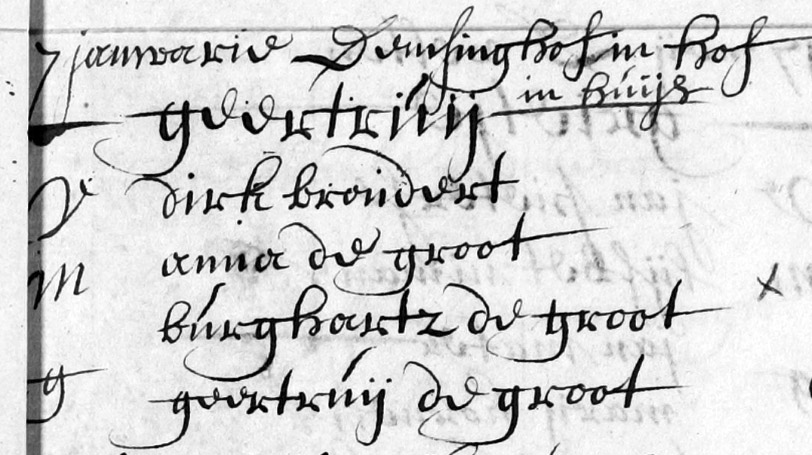 7 januarie Densinghof in hof
in huijs
geertruij
V dirk broudert
M anna de groot
burghartz de groot
g geertruij de groot